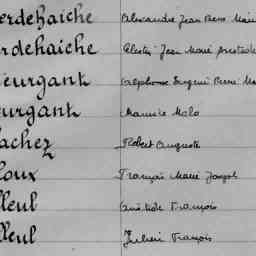 erdehaiche Alexandre Jean Pierre Marie
rdehaiche Célestin Jean Marie Aristide
eurgant Alphonse Eugène Pierre Ma
eurgant Maurice Malo
achez Robert Auguste
oux François Marie Joseph
lleul Aristide François
lleul Julien François